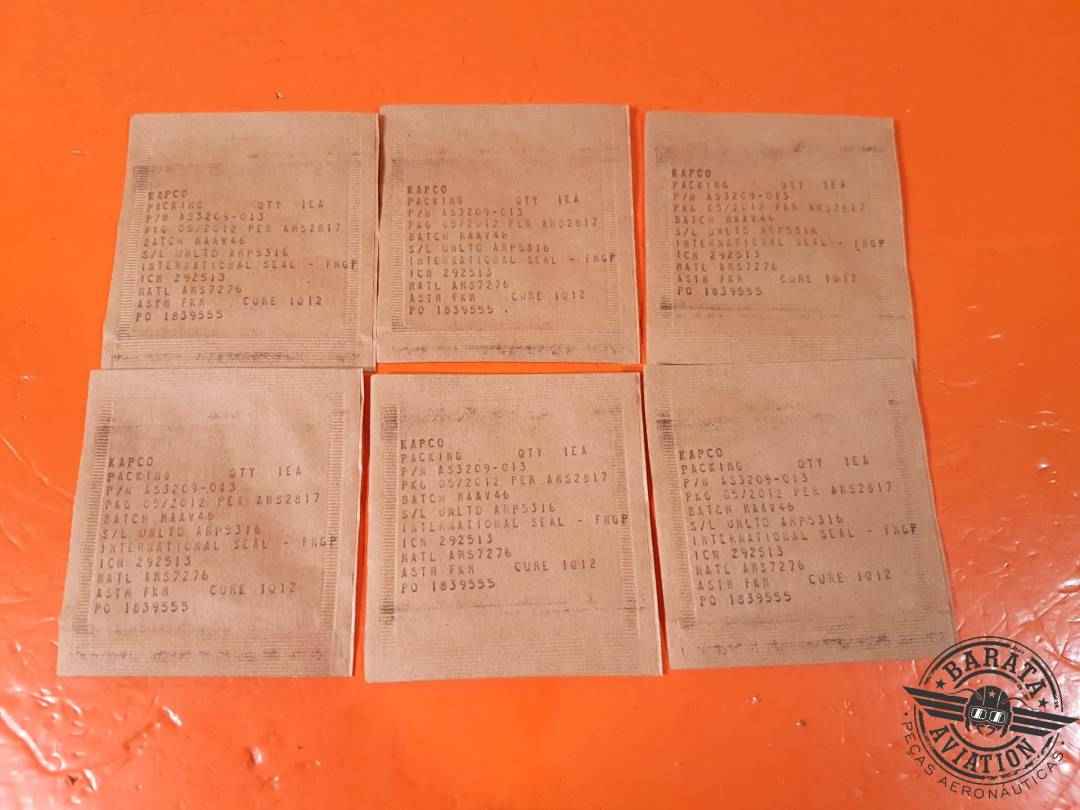 KAPCO
PACKING QTY 1EA
P/N AS3209-013
PKG 05/2012 PER AMS2817
BATCH NAAV46
S/L UNLTD ARP5316
INTERNATIONAL SEAL - FNGP
ICN 292513
MATL AMS7276
ASTM FKM CURE 1Q12
PO 1839555
KAPCO
PACKING QTY 1EA
P/N AS3209-013
PKG 05/2012 PER AMS2817
BATCH NAAV46
S/L UNLTD ARP5316
INTERNATIONAL SEAL - FNGP
ICN 292513
MATL AMS7276
ASTM FKM CURE 1Q12
PO 1839555
KAPCO
PACKING QTY 1EA
P/N AS3209-013
PKG 05/2012 PER AMS2817
BATCH NAAV46
S/L UNLTD ARP5316
INTERNATIONAL SEAL - FNGP
ICN 292513
MATL AMS7276
ASTM FKM CURE 1Q12
PO 1839555
KAPCO
PACKING QTY 1EA
P/N AS3209-013
PKG 05/2012 PER AMS2817
BATCH NAAV46
S/L UNLTD ARP5316
INTERNATIONAL SEAL - FNGP
ICN 292513
MATL AMS7276
ASTM FKM CURE 1Q12
PO 1839555
KAPCO
PACKING QTY 1EA
P/N AS3209-013
PKG 05/2012 PER AMS2817
BATCH NAAV46
S/L UNLTD ARP5316
INTERNATIONAL SEAL - FNGP
ICN 292513
MATL AMS7276
ASTM FKM CURE 1Q12
PO 1839555
KAPCO
PACKING QTY 1EA
P/N AS3209-013
PKG 05/2012 PER AMS2817
BATCH NAAV46
S/L UNLTD ARP5316
INTERNATIONAL SEAL - FNGP
ICN 292513
MATL AMS7276
ASTM FKM CURE 1Q12
PO 1839555
BARATA
AVIATION
PEÇAS AERONÁUTICAS